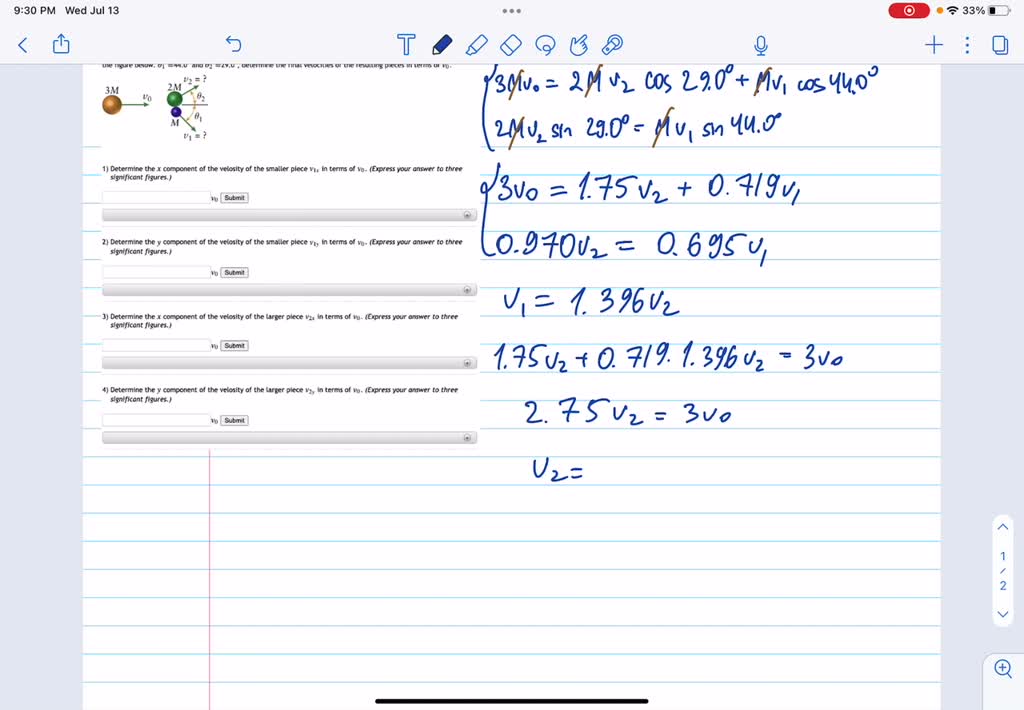 9:30 PM Wed Jul 13
33%
the figure below. θ1 =44.0° and θ2 =29.0°, determine the final velocities of the resulting pieces in terms of v0.
3M
v0
2M
v2 = ?
θ2
θ1
M
v1 = ?
1) Determine the x component of the velocity of the smaller piece v1x in terms of v0. (Express your answer to three
significant figures.)
v0 Submit
2) Determine the y component of the velocity of the smaller piece v1y in terms of v0. (Express your answer to three
significant figures.)
v0 Submit
3) Determine the x component of the velocity of the larger piece v2x in terms of v0. (Express your answer to three
significant figures.)
v0 Submit
4) Determine the y component of the velocity of the larger piece v2y in terms of v0. (Express your answer to three
significant figures.)
v0 Submit
3Mv0 = 2M v2 cos 29.0° + Mv1 cos 44.0°
2Mv2 sin 29.0° = Mv1 sin 44.0°
3v0 = 1.75v2 + 0.719v1
0.970v2 = 0.695v1
v1 = 1.396v2
1.75v2 + 0.719.1.396v2 = 3v0
2.75v2 = 3v0
v2 =
1
/
2